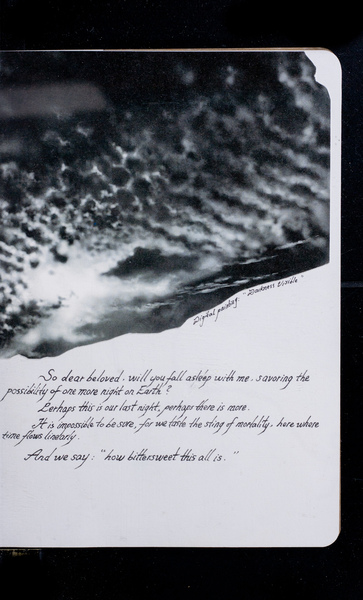 Digital painting: "Darkness Visible"
So dear beloved, will you fall asleep with me, savoring the
possibility of one more night on Earth?
Perhaps this is our last night, perhaps there is more.
It is impossible to be sure, for we taste the sting of mortality, here where
time flows linearly.
And we say: "how bittersweet this all is."